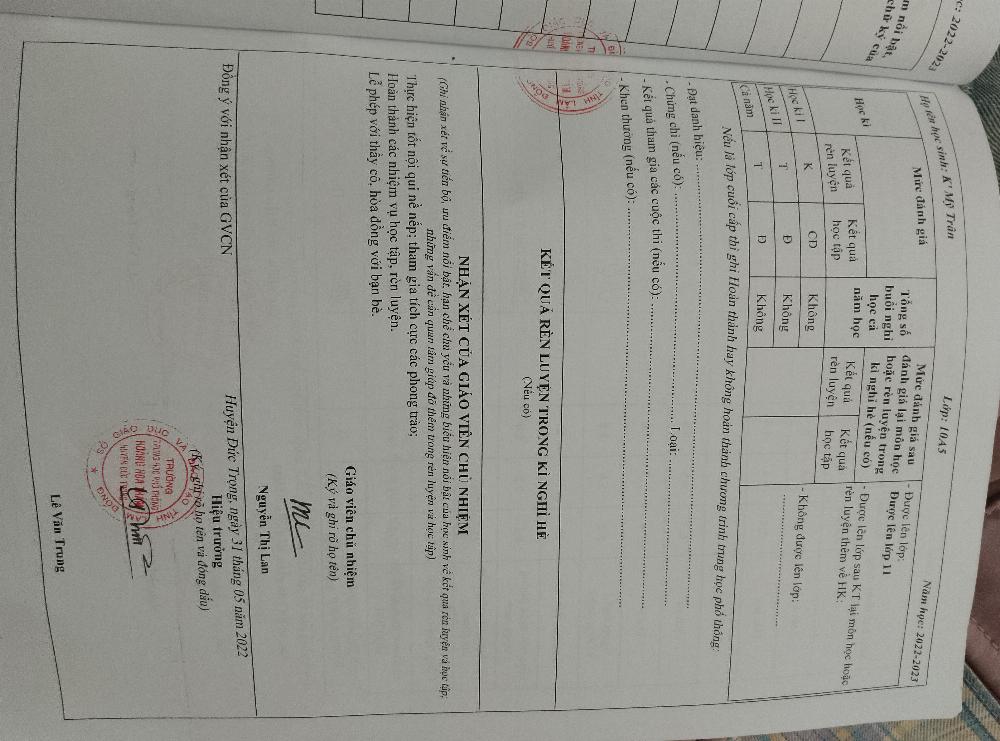 c: 2022-2023
m nổi bật,
chữ ký của
Họ tên học sinh: K' Mỹ Trân
Lớp: 10A5
Năm học: 2022-2023
Học kì
Mức đánh giá
Kết quả rèn luyện
Kết quả học tập
Tổng số buổi nghỉ học cả năm học
Mức đánh giá sau đánh giá lại môn học hoặc rèn luyện trong kì nghỉ hè (nếu có)
Kết quả rèn luyện
Kết quả học tập
- Được lên lớp:
Được lên lớp 11
- Được lên lớp sau KT lại môn học hoặc
rèn luyện thêm về HK:
- Không được lên lớp:
Học kì I K CĐ Không
Học kì II T Đ Không
Cả năm T Đ Không
Nếu là lớp cuối cấp thì ghi Hoàn thành hay không hoàn thành chương trình trung học phổ thông:
- Đạt danh hiệu:
- Chứng chỉ (nếu có): Loại:
- Kết quả tham gia các cuộc thi (nếu có):
- Khen thưởng (nếu có):
KẾT QUẢ RÈN LUYỆN TRONG KÌ NGHỈ HÈ
(Nếu có)
NHẬN XÉT CỦA GIÁO VIÊN CHỦ NHIỆM
(Ghi nhận xét về sự tiến bộ, ưu điểm nổi bật, hạn chế chủ yếu và những biểu hiện nổi bật của học sinh về kết quả rèn luyện và học tập;
những vấn đề cần quan tâm giúp đỡ thêm trong rèn luyện và học tập)
Thực hiện tốt nội qui nề nếp; tham gia tích cực các phong trào;
Hoàn thành các nhiệm vụ học tập, rèn luyện.
Lễ phép với thầy cô, hòa đồng với bạn bè.
Giáo viên chủ nhiệm
(Ký và ghi rõ họ tên)
Nguyễn Thị Lan
Đồng ý với nhận xét của GVCN
Huyện Đức Trọng, ngày 31 tháng 05 năm 2022
Hiệu trưởng
(Ký, ghi rõ họ tên và đóng dấu)
SỞ GIÁO DỤC VÀ ĐÀO TẠO TỈNH LÂM ĐỒNG
TRƯỜNG
TRUNG HỌC PHỔ THÔNG
HOÀNG HOA THÁM
HUYỆN ĐỨC TRỌNG
Lê Văn Trung